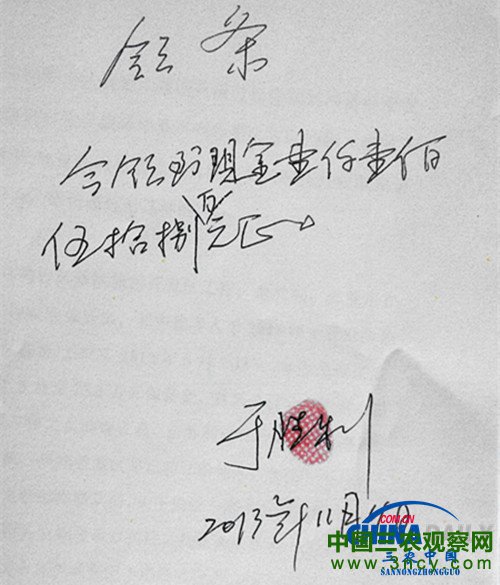 领条
今领到现金壹仟壹佰
伍拾捌元正
于胜利
2013年11月
.COM.CN
CHINA DAILY
三农中国
SANNONGZHONGGUO
中国三农观察网
www.3ncy.com